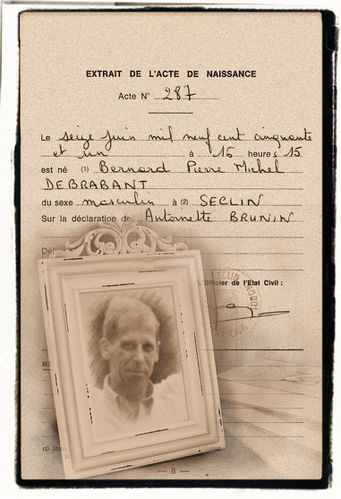 EXTRAIT DE L'ACTE DE NAISSANCE
Acte N° 287
Le seize juin mil neuf cent cinquante
et un à 16 heures 15
est né (1) Bernard Pierre Michel
DEBRABANT
du sexe masculin à (2) SECLIN
Sur la déclaration de Antoinette BRUNIN
Dél
L'Officier de l'État Civil :
SECLIN
NORD
CIVIL
a)
— 8 —